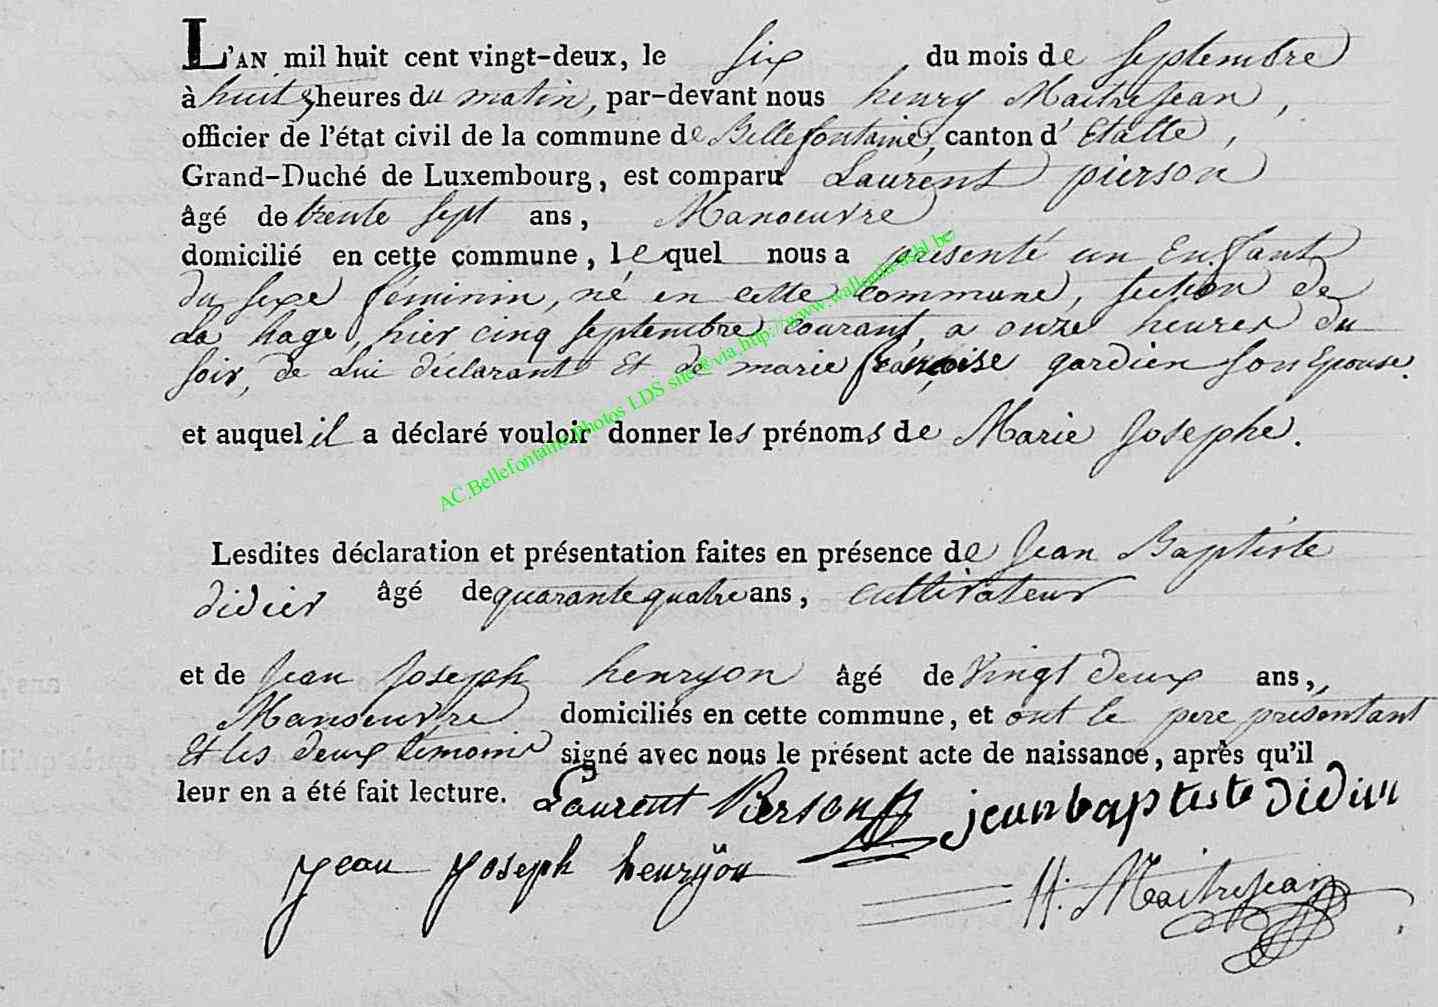 L'AN mil huit cent vingt-deux, le six du mois de Septembre
à huit heures du matin, par-devant nous henry Maitrejean,
officier de l'état civil de la commune de Bellefontaine, canton d'Etalle,
Grand-Duché de Luxembourg, est comparu Laurent pierson
âgé de trente sept ans, Manoeuvre
domicilié en cette commune, lequel nous a présenté un Enfant
du sexe féminin, né en cette commune, section de
La hage, hier cinq septembre courant, a onze heures du
soir, de Lui déclarant Et de marie françoise gardien son Epouse.
et auquel il a déclaré vouloir donner les prénoms de Marie Josephe.
Lesdites déclaration et présentation faites en présence de Jean Baptiste
didier âgé de quarante quatre ans, cultivateur
et de Jean Joseph henryon âgé de Vingt deux ans,
Manoeuvre domiciliés en cette commune, et ont le pere présentant
Et les deux témoins signé avec nous le présent acte de naissance, après qu'il
leur en a été fait lecture. Laurent Pierson jean baptiste didier
jean joseph henryon
H. Maitrejean
AC.Bellefontaine photos LDS site via http://www.wallonia-asbl.be/